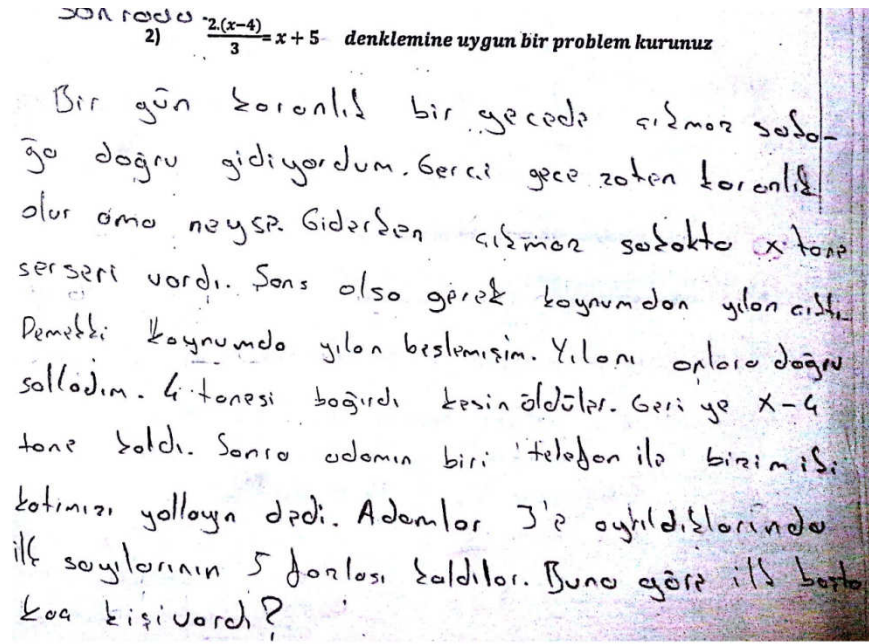 Sonrada
2) 2.(x−4)/3 = x + 5 denklemine uygun bir problem kurunuz
Bir gün karanlık bir gecede çıkmaz soka-
ğa doğru gidiyordum. Gerçi gece zaten karanlık
olur ama neyse. Giderken çıkmaz sokakta x tane
serseri vardı. Şans olsa gerek koynumdan yılan çıktı.
Demekki koynumda yılan beslemişim. Yılanı onlara doğru
salladım. 4 tanesi bağırdı kesin öldüler. Geri ye x-4
tane kaldı. Sonra adamın biri telefon ile bizim iki
katımızı yollayın dedi. Adamlar 3'e ayrıldıklarında
ilk sayılarının 5 fazlası kaldılar. Buna göre ilk başta
kaç kişi vardı?